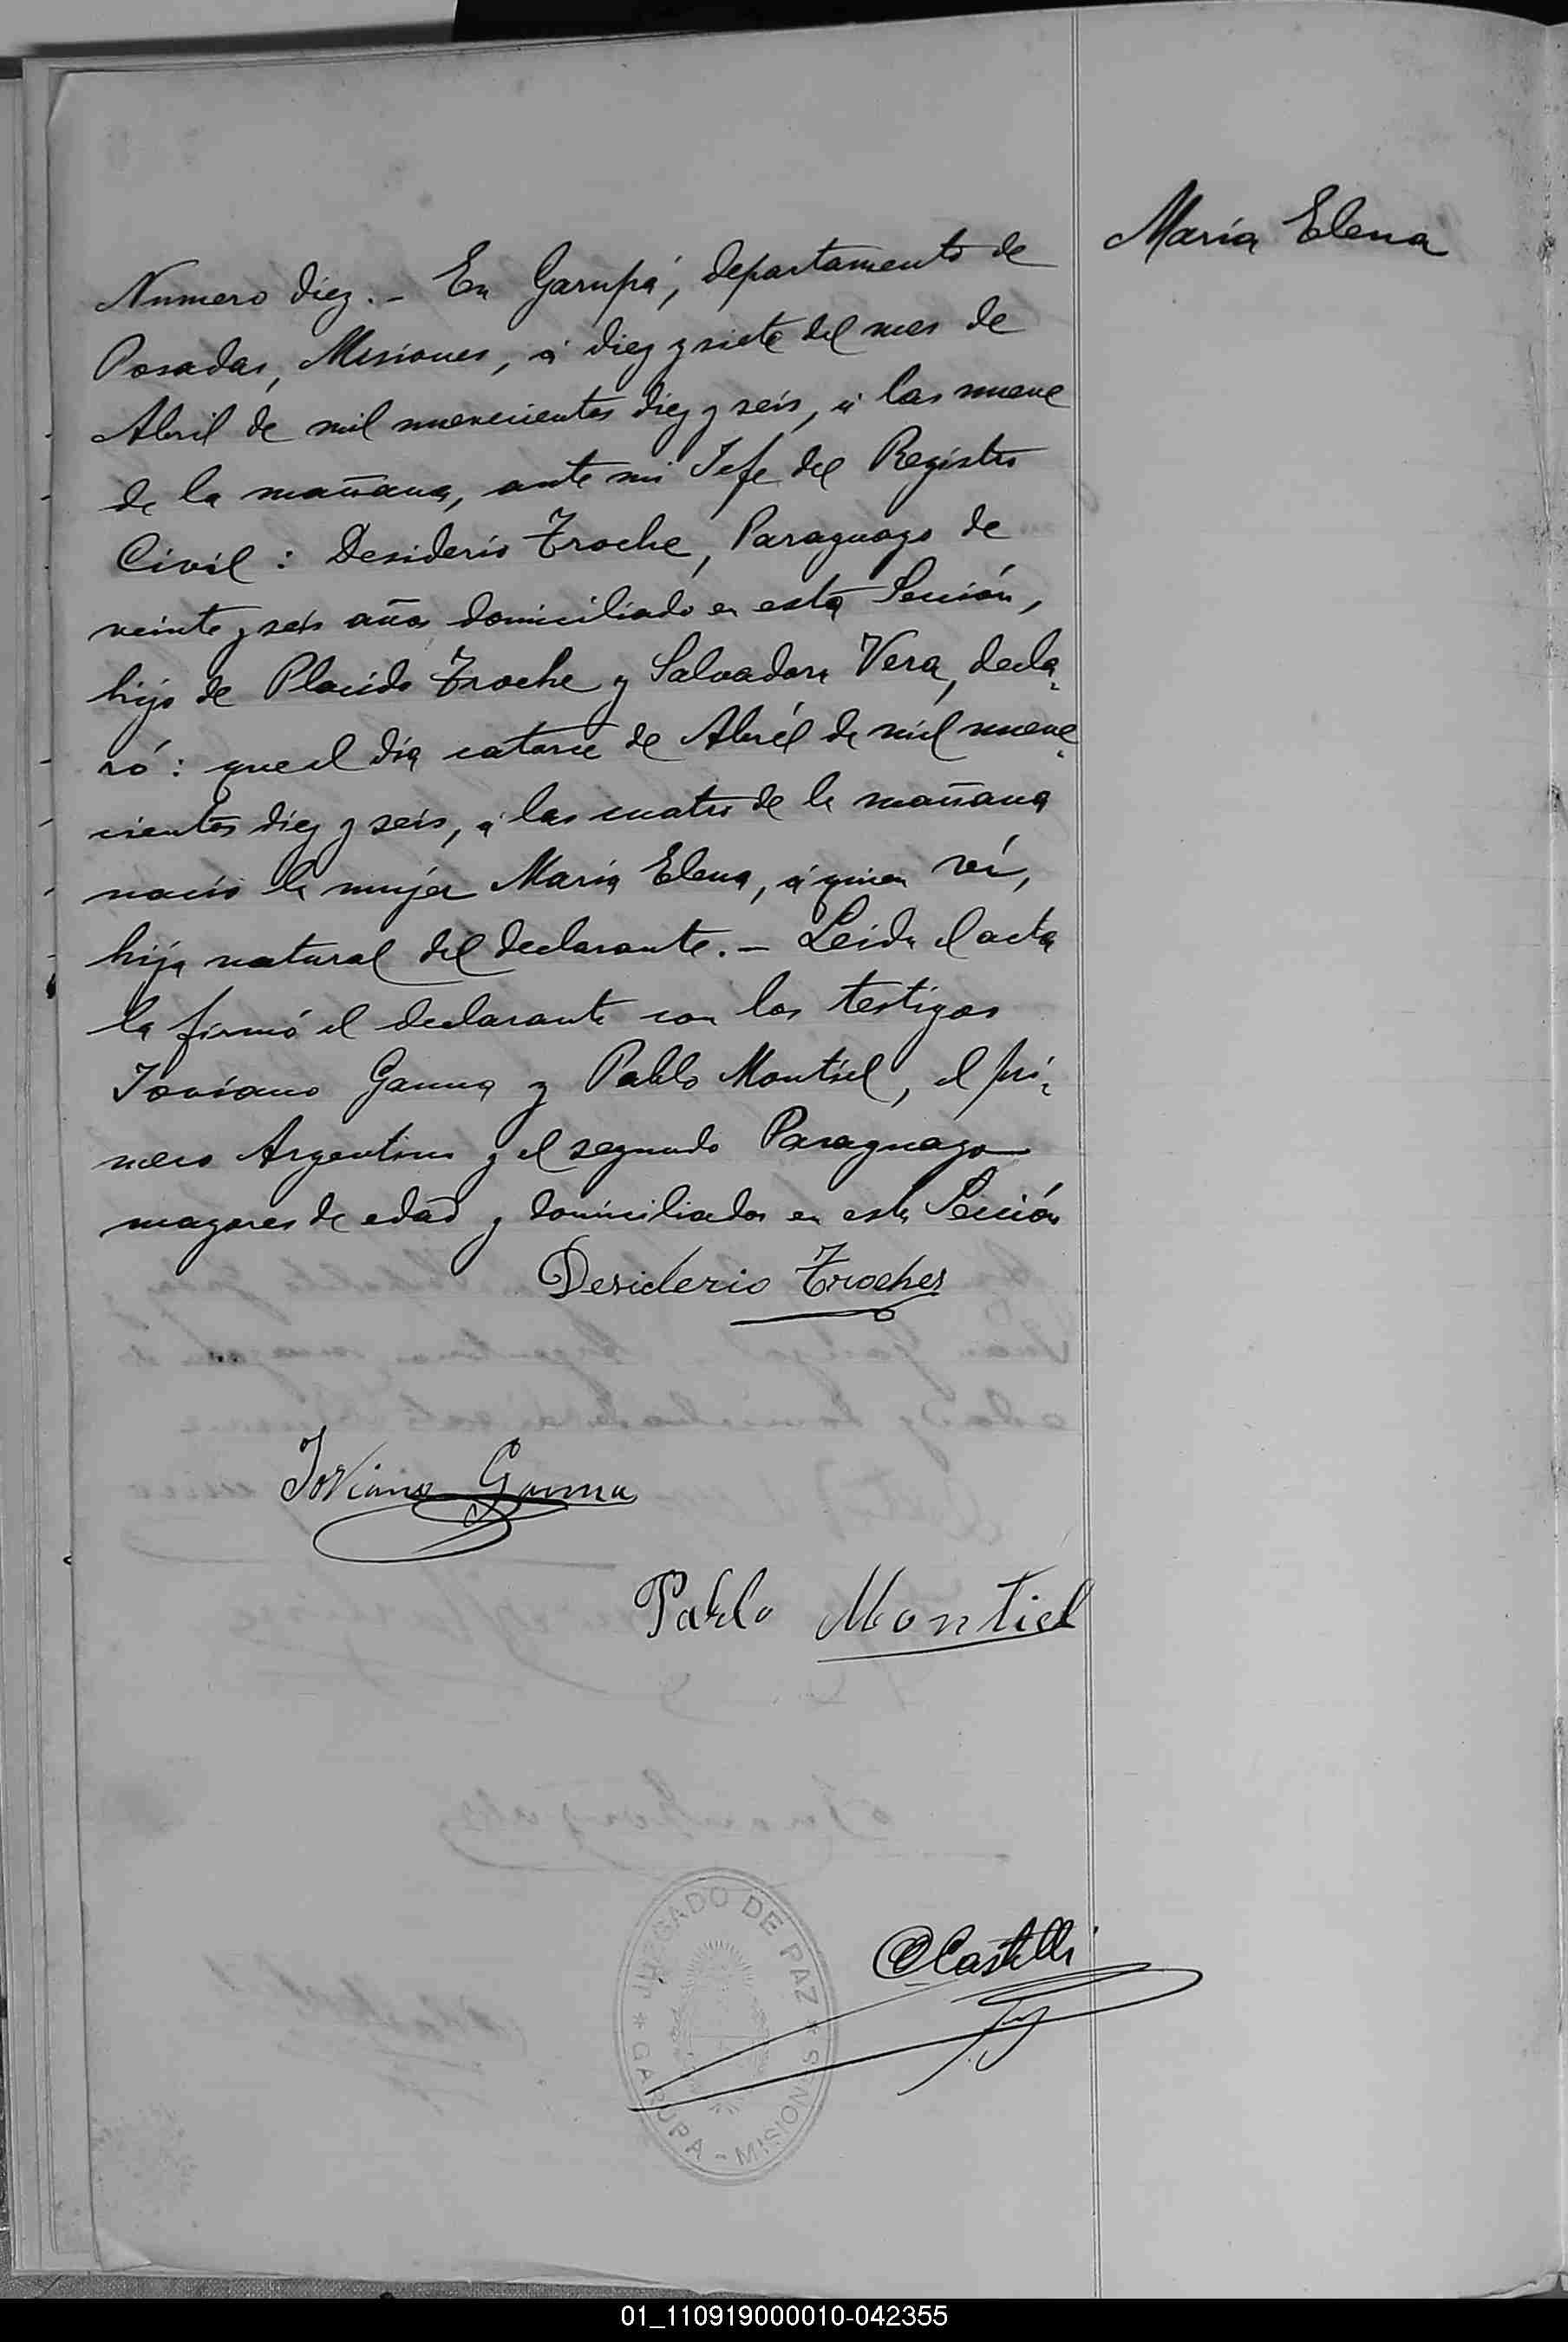 María Elena
Numero diez.- En Garupá, departamento de
Posadas, Misiones, á diez y siete del mes de
Abril de mil novecientos diez y seis, á las nueve
de la mañana, ante mi Jefe del Registro
Civil: Desiderio Troche, Paraguayo de
veinte y seis años domiciliado en esta Sección,
hijo de Placido Troche y Salvadora Vera, decla-
ró: que el día catorce de Abril de mil nueve-
cientos diez y seis, á las cuatro de la mañana
nació la mujer María Elena, á quien ví,
hija natural del declarante.- Leida el acta
la firmó el declarante con los testigos
Joviano Gauna y Pablo Montiel, el pri-
mero Argentino y el segundo Paraguayo
mayores de edad y domiciliados en esta Sección
Desiderio Troches
Joviano Gauna
Pablo Montiel
JUZGADO DE PAZ * GARUPA - MISIONES *
CCastelli
01_110919000010-042355